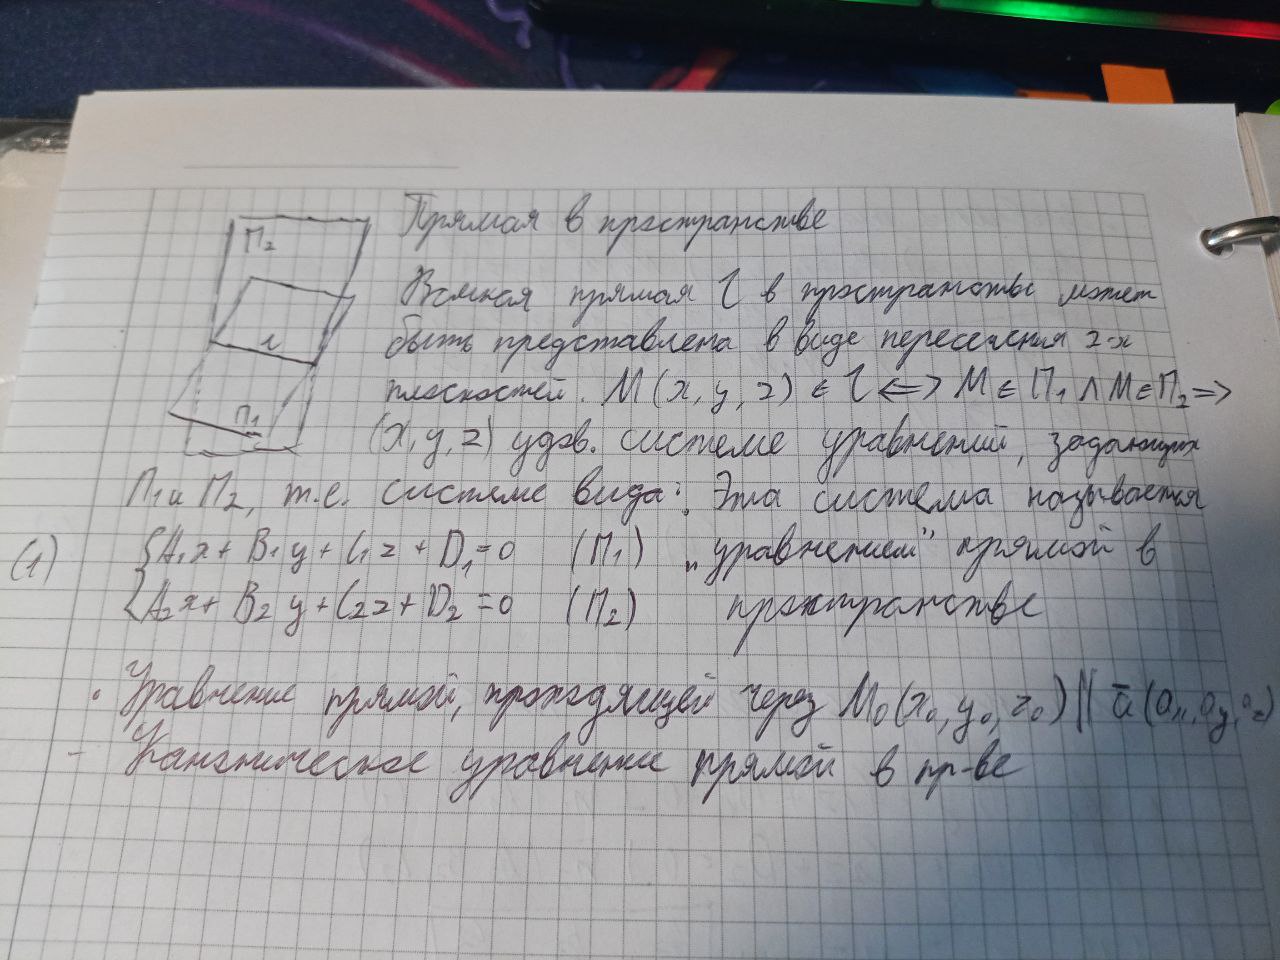 Прямая в пространстве
П₂
Всякая прямая l в пространстве может
быть представлена в виде пересечения 2-х
l
плоскостей. M(x, y, z) ∈ l ⟺ M ∈ П₁ ∧ M ∈ П₂ ⟹
П₁
(x, y, z) удов. системе уравнений, задающих
П₁ и П₂, т.е. системе вида: Эта система называется
(1) { A₁x + B₁y + C₁z + D₁ = 0 (П₁) „уравнением" прямой в
{ A₂x + B₂y + C₂z + D₂ = 0 (П₂) пространстве
• Уравнение прямой, проходящей через M₀(x₀, y₀, z₀) || ā(aₓ, aᵧ, a_z)
- Каноническое уравнение прямой в пр-ве